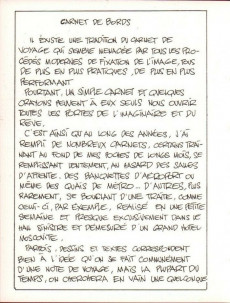 CARNET DE BORDS
IL EXISTE UNE TRADITION DU CARNET DE
VOYAGE QUI SEMBLE MENACÉE PAR TOUS LES PRO-
CÉDÉS MODERNES DE FIXATION DE L'IMAGE, TOUS
DE PLUS EN PLUS PRATIQUES, DE PLUS EN PLUS
PERFORMANT.
POURTANT, UN SIMPLE CARNET ET QUELQUES
CRAYONS PEUVENT À EUX SEULS NOUS OUVRIR
TOUTES LES PORTES DE L'IMAGINAIRE ET DU
RÊVE.
C'EST AINSI QU'AU LONG DES ANNÉES, J'AI
REMPLI DE NOMBREUX CARNETS, CERTAINS TRAÎ-
NANT AU FOND DE MES POCHES DE LONGS MOIS, SE
REMPLISSANT LENTEMENT, AU HASARD DES SALLES
D'ATTENTE, DES BANQUETTES D'AÉROPORT OU
MÊME DES QUAIS DE MÉTRO... D'AUTRES, PLUS
RAREMENT, SE BOUCLANT D'UNE TRAITE, COMME
CELUI-CI, PAR EXEMPLE, RÉALISÉ EN UNE PETITE
SEMAINE ET PRESQUE EXCLUSIVEMENT DANS LE
HALL SINISTRE ET DÉMESURÉ D'UN GRAND HÔTEL
MOSCOVITE.
PARFOIS, DESSINS ET TEXTES CORRESPONDENT
BIEN À L'IDÉE QU'ON SE FAIT COMMUNÉMENT
D'UNE NOTE DE VOYAGE, MAIS LA PLUPART DU
TEMPS, ON CHERCHERA EN VAIN UNE QUELCONQUE